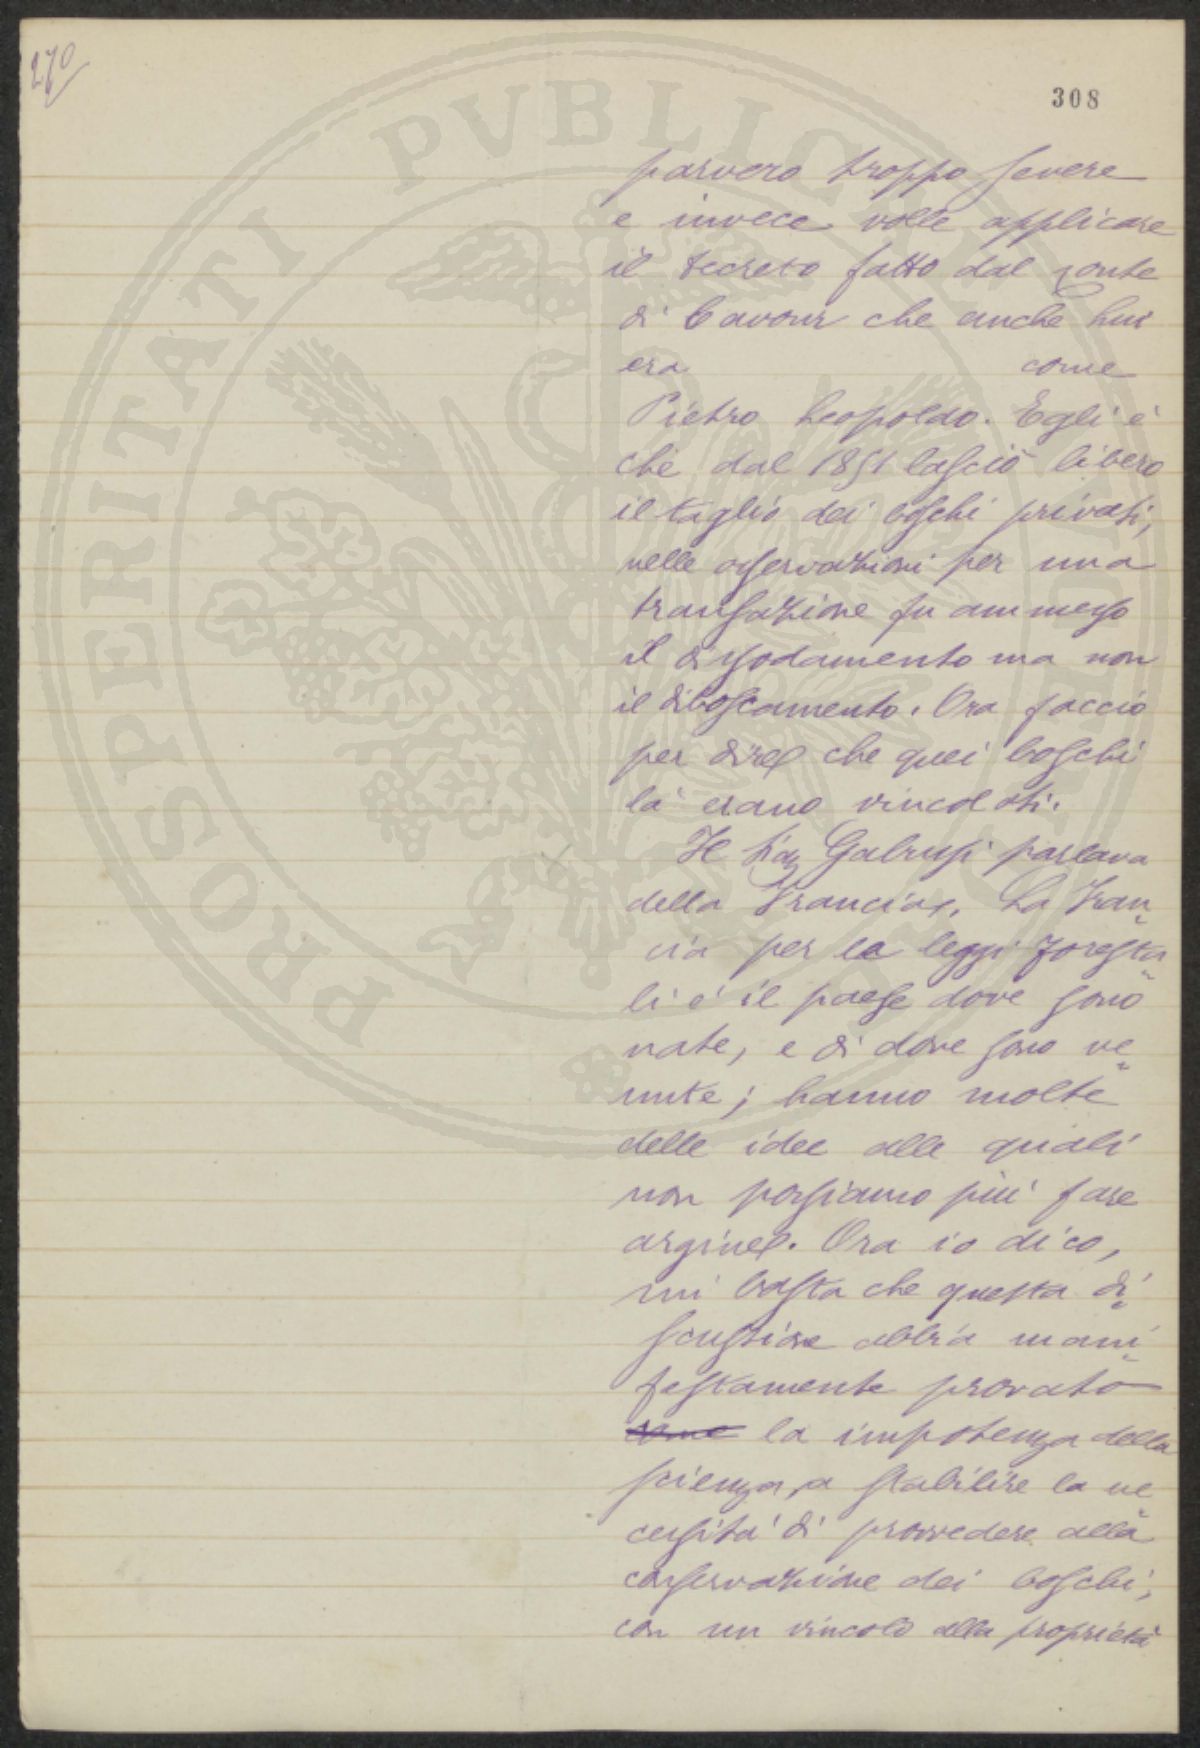 270
308
parvero troppo severe
e invece volle applicare
il decreto fatto dal conte
di Cavour che anche lui
era come
Pietro Leopoldo. Egli è
che dal 1851 lasciò libero
il taglio dei boschi privati,
nelle osservazioni per una
transazione fu ammesso
il dissodamento ma non
il diboscamento. Ora faccio
per dire che quei boschi
là erano vincolati.
Il Sig Galrussi parlava
della Francia. La Fran
cia per la leggi foresta
li è il paese dove sono
nate, e di dove sono ve
nute; hanno molte
delle idee alle quali
non possiamo più fare
argine. Ora io dico,
mi basta che questa di
scussione abbia mani
festamente provato
come la impotenza della
scienza, a stabilire la ne
cessità di provvedere alla
conservazione dei boschi,
con un vincolo alla proprietà
PVBLICAE
PROSPERITATI